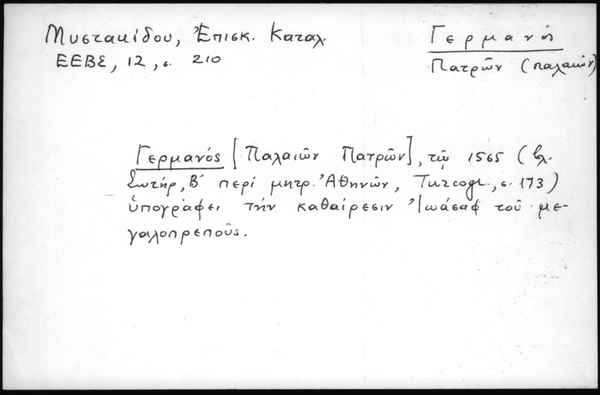 Μυστακίδου, Ἐπισκ. Καταλ.
ΕΕΒΣ, 12, σ. 210
Γερμανός
Πατρῶν (παλαιῶν)
Γερμανός [Παλαιῶν Πατρῶν], τῷ 1565 (βλ.
Σωτήρ, Β' περί μητρ. Ἀθηνῶν, Turcogr., σ. 173)
ὑπογράφει τήν καθαίρεσιν Ἰωάσαφ τοῦ με-
γαλοπρεποῦς.